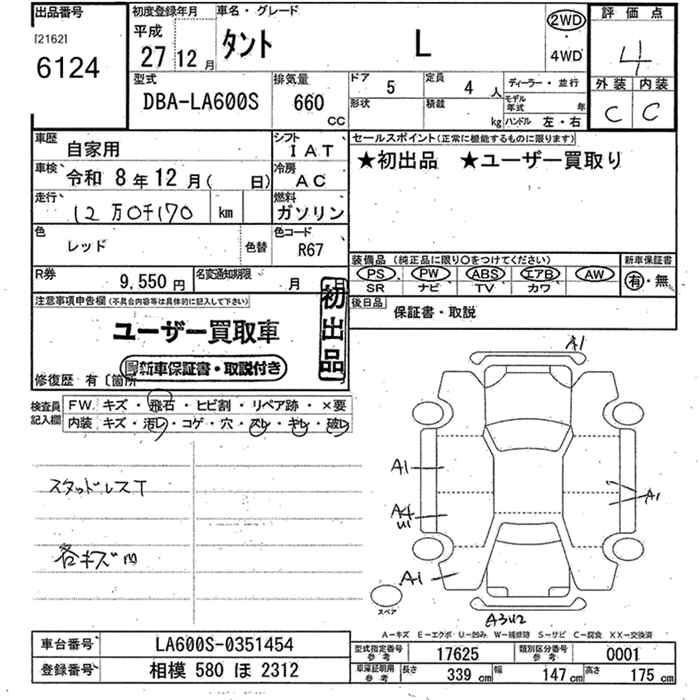 出品番号
[2162]
6124
初度登録年月
平成
27年12月
車名・グレード
タント L
2WD
・
4WD
評価点
4
外装 内装
C C
型式
DBA-LA600S
排気量
660
CC
ドア 5
定員 4人
形状
積載 kg
ディーラー・並行
モデル年式 年
ハンドル 左・右
車歴 自家用
シフト IAT
車検 令和 8年12月( 日)
冷房 AC
走行 12万0千170 km
燃料 ガソリン
色 レッド 色替
色コード R67
R券 9,550円
名変通知期限 月 日
セールスポイント(正常に機能するものに限ります)
★初出品 ★ユーザー買取り
装備品 (純正品に限り○をつけてください)
PS PW ABS エアB AW
SR ナビ TV カワ
新車保証書
有・無
後日品
保証書・取説
注意事項申告欄(不具合内容等は具体的に記入して下さい)
ユーザー買取車
初出品
新車保証書・取説付き
修復歴 有〔箇所
検査員記入欄
FW. キズ・飛石・ヒビ割・リペア跡・×要
内装 キズ・汚レ・コゲ・穴・スレ・キレ・破レ
スタッドレスT
各キズ凹
A1
A1
A4
U1
A1
A1
A3U2
スペア
A-キズ E-エクボ U-凹み W-補修跡 S-サビ C-腐食 XX-交換済
車台番号 LA600S-0351454
登録番号 相模 580 ほ 2312
型式指定番号 参考 17625
類別区分番号 参考 0001
車庫証明用 参考
長さ 339 cm
幅 147 cm
高さ 175 cm